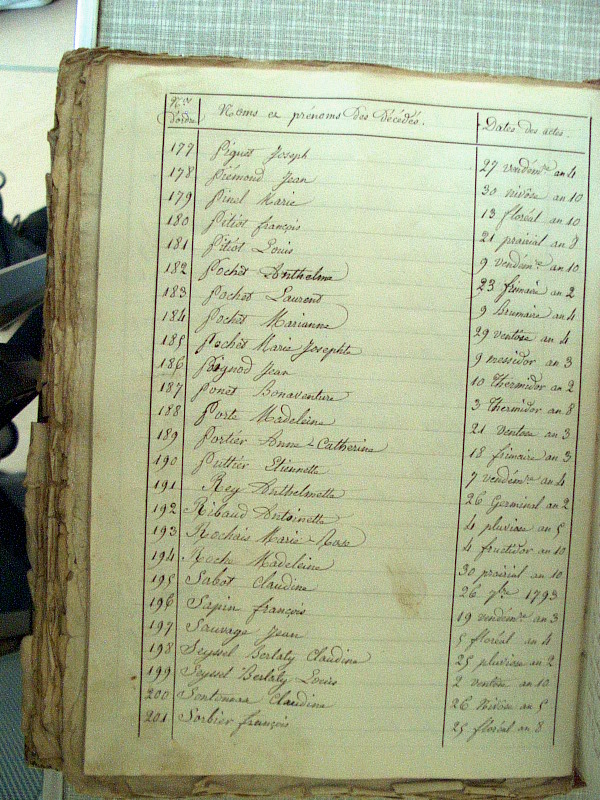 Nos d'ordre Noms et prénoms des Décédés. Dates des actes.
177 Piguet Joseph 27 vendémre an 4
178 Piémond Jean 30 nivôse an 10
179 Pinel Marie 13 floréal an 10
180 Pitiot françois 21 prairial an 8
181 Pitiot Louis 9 vendémre an 10
182 Pochet Anthelme 23 frimaire an 2
183 Pochet Laurent 9 Brumaire an 4
184 Pochet Marianne 29 ventôse an 4
185 Pochet Marie Josephte 9 messidor an 3
186 Poignod Jean 10 Thermidor an 2
187 Ponet Bonaventure 3 Thermidor an 8
188 Porte Madeleine 21 Ventose an 3
189 Portier Anne-Catherine 18 frimaire an 3
190 Puthier Etiennette 7 vendémre an 4
191 Rey Anthelmette 26 Germinal an 2
192 Ribaud Antoinette 4 pluviose an 5
193 Rochais Marie-Rose 4 fructidor an 10
194 Roche Madeleine 30 prairial an 10
195 Sabot Claudine 26 7bre 1793
196 Sapin françois 19 vendémre an 3
197 Sauvage Jean 5 floréal an 4
198 Seyssel Bertaly Claudine 25 pluviose an 2
199 Seyssel Bertaly Louis 2 ventôse an 10
200 Sontonnax Claudine 26 Nivôse an 5
201 Sorbier françois 25 floréal an 8